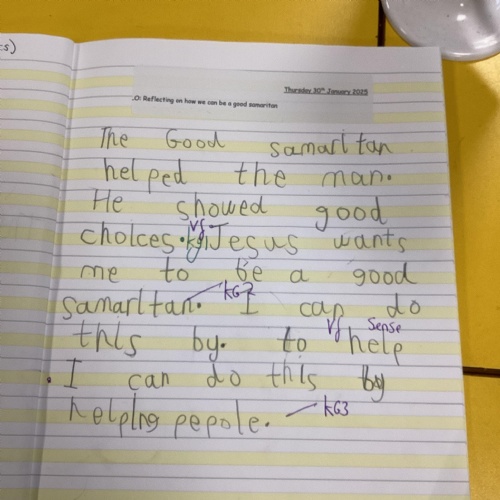 cs)
Thursday 30th January 2025
.O: Reflecting on how we can be a good samaritan
The Good samaritan
helped the man.
He showed good
VF
choices. KG1 Jesus wants
me to be a good
samaritan. KG2 I can do
VF Sense
this by. to help
. I can do this by
helping pepole. KG3